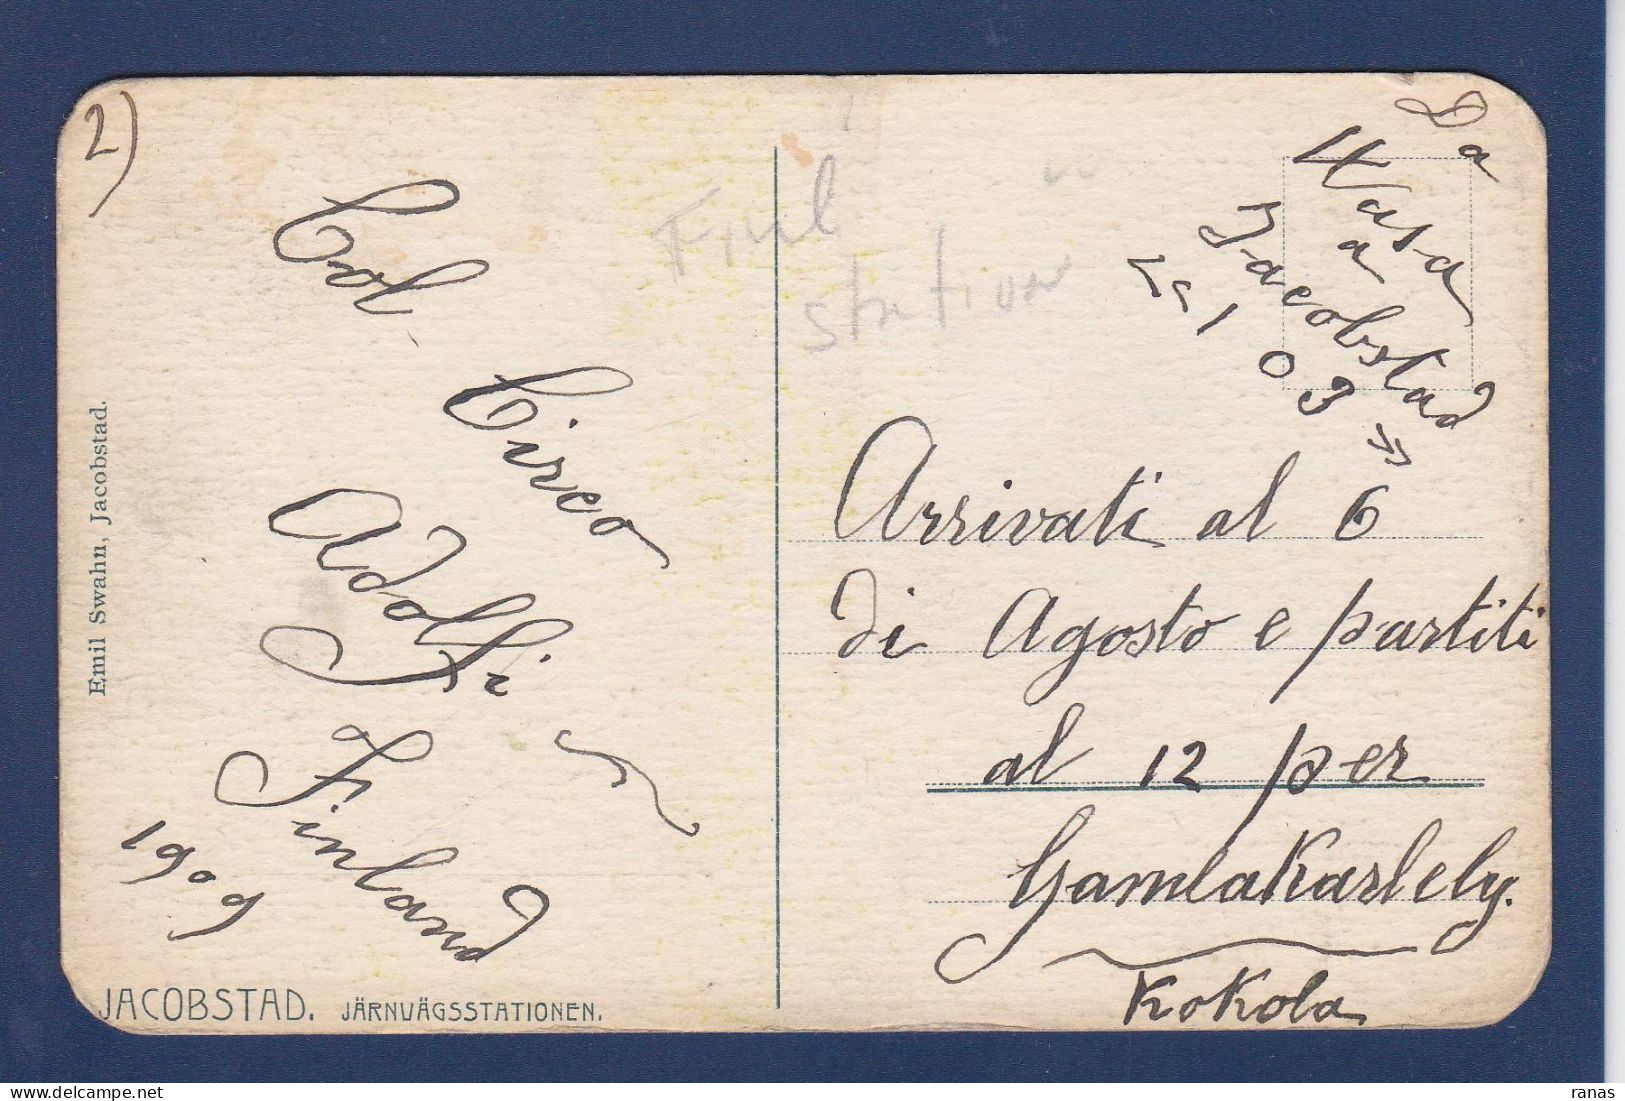 2)
Col Circo
Adolfi
Finland
1909
Finl
station
Da
Wasa
a
Jacobstad
103
Arrivati al 6
di Agosto e partiti
al 12 per
Gamlakarlely.
Kokola
Emil Swahn, Jacobstad.
JACOBSTAD. JÄRNVÄGSSTATIONEN.
ranas